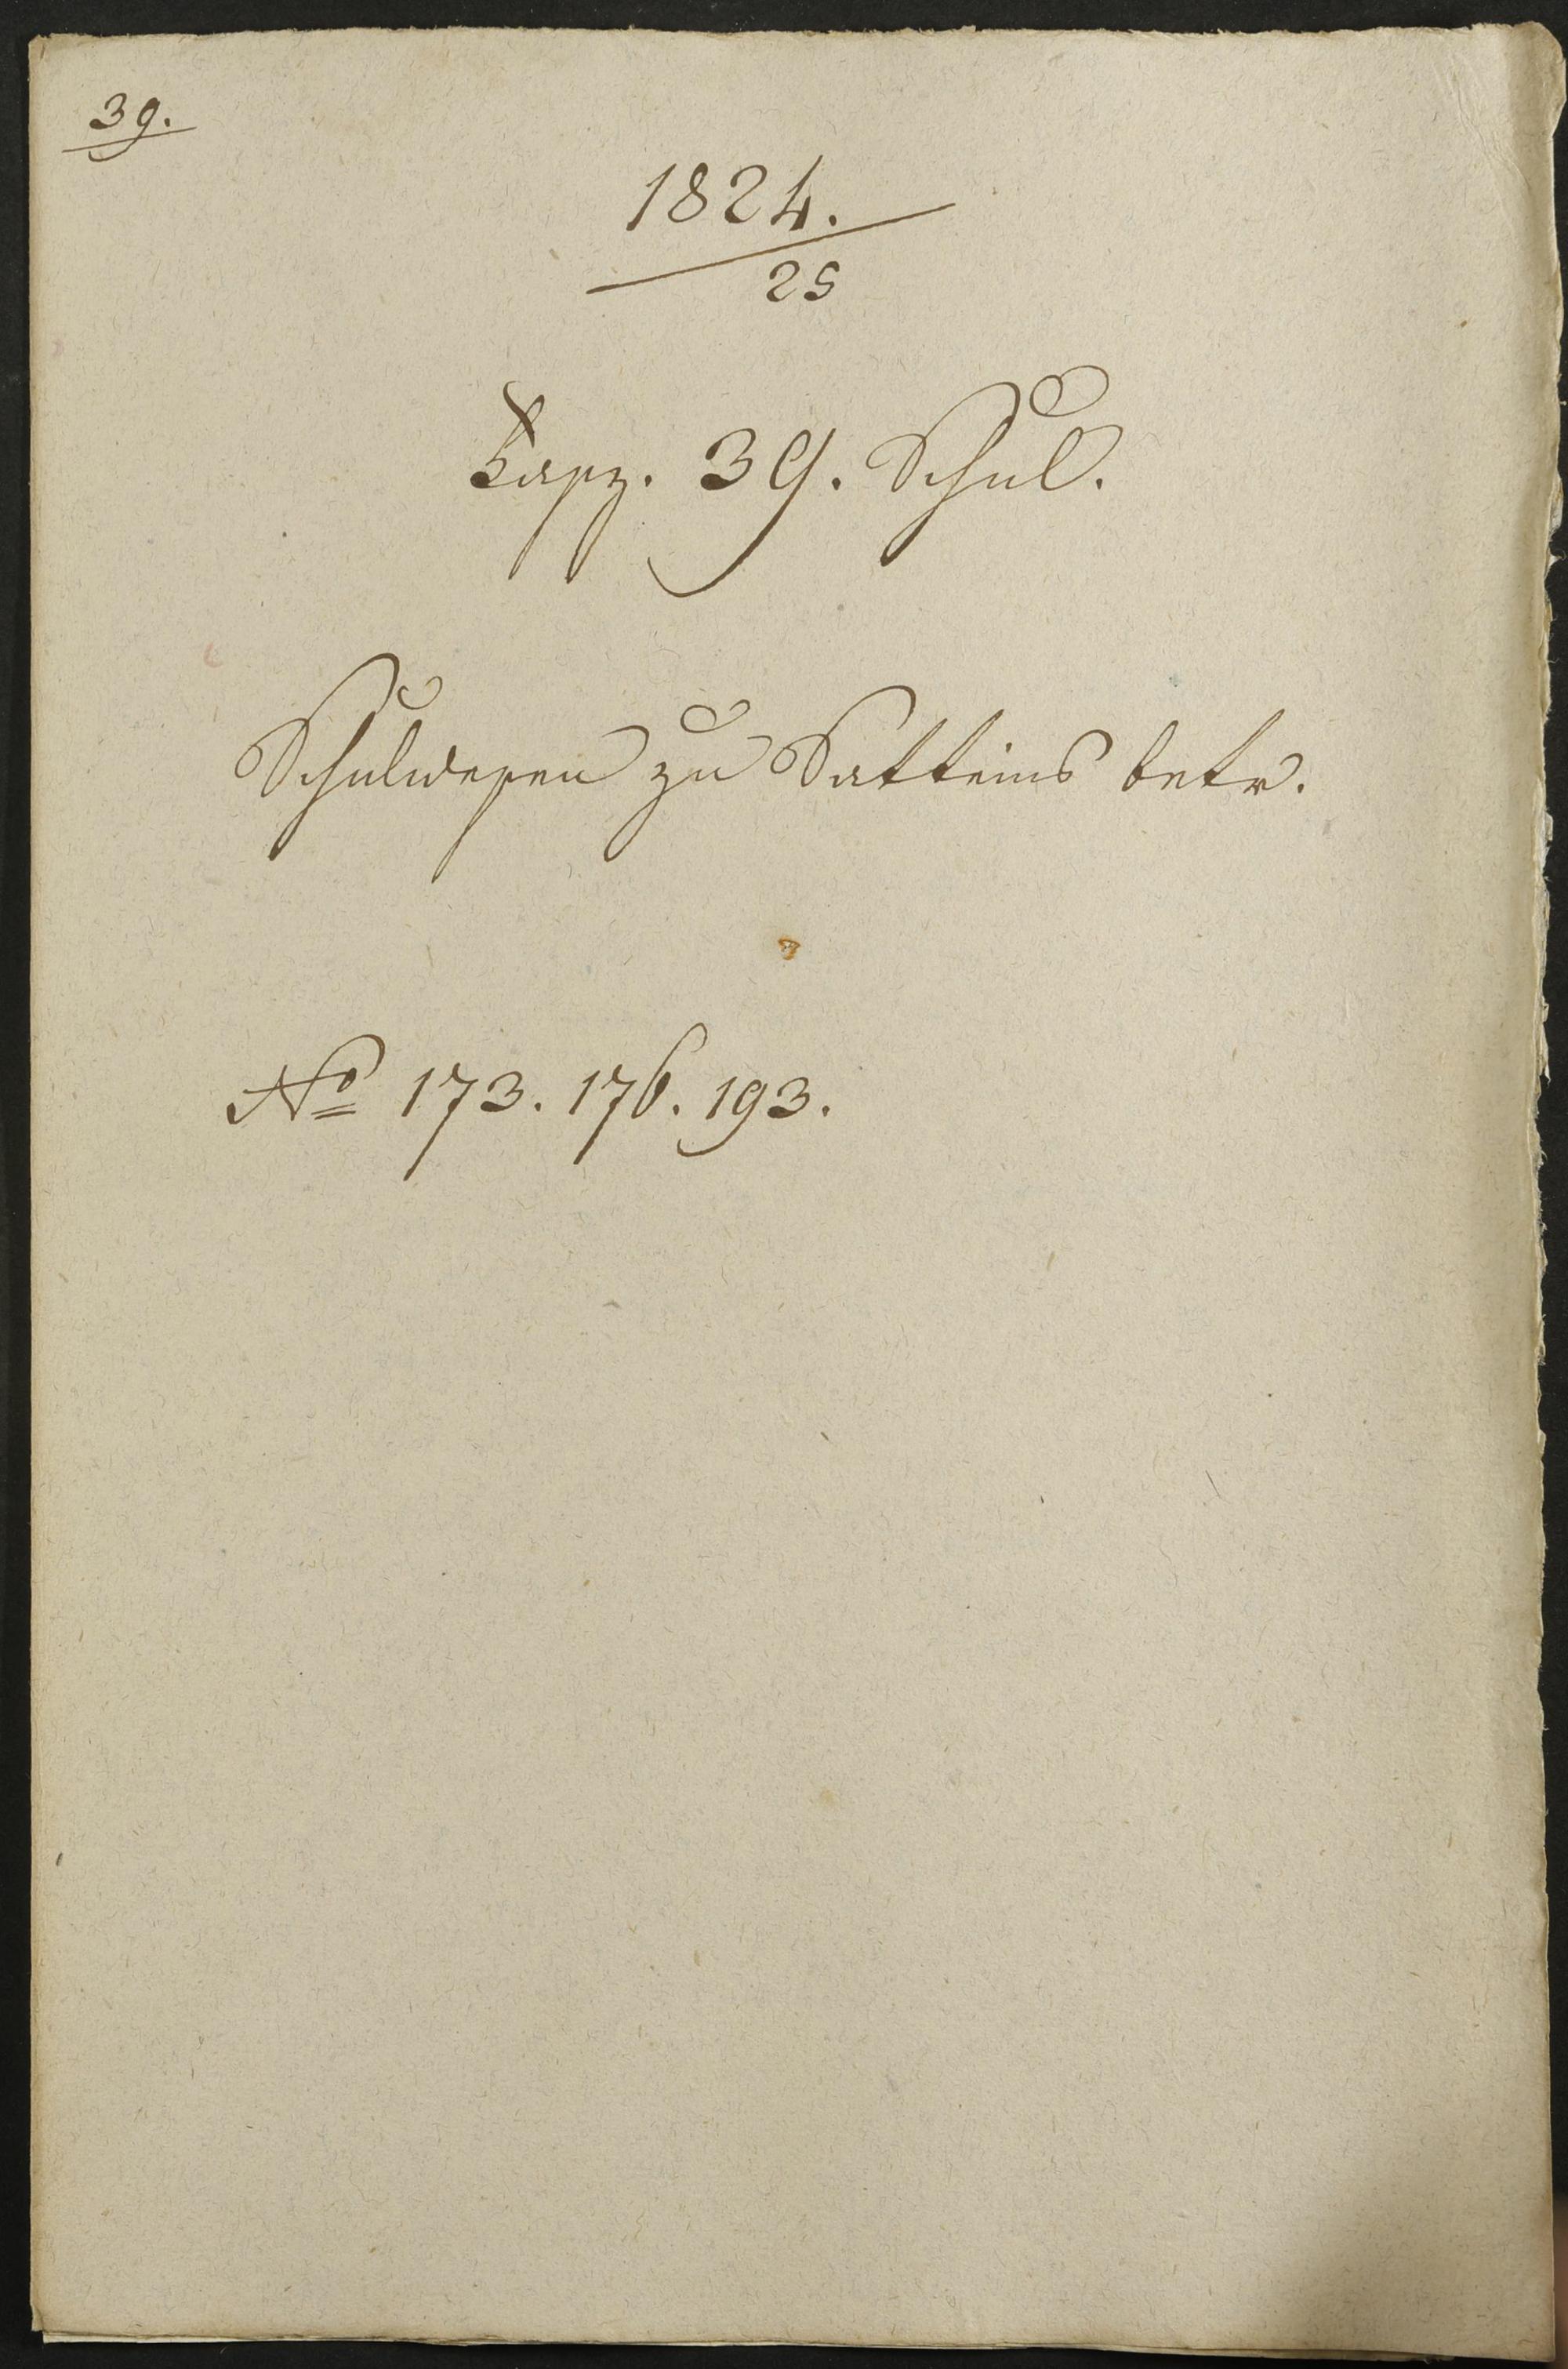 39.
1824.
25
Fasz. 39. Schul.
Schulwesen zu Satteins betr.
No 173. 176. 193.